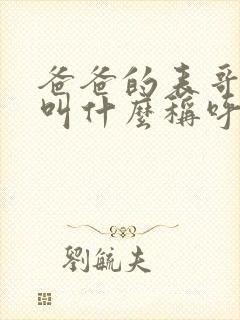 爸爸的表哥
叫什麼稱呼
劉毓夫